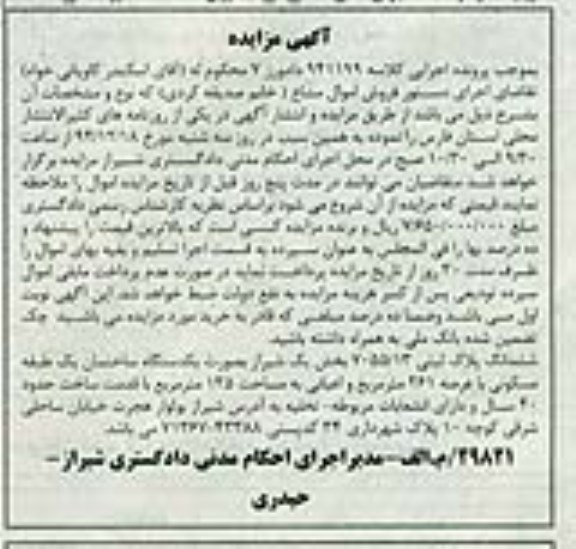 آگهی مزایده
بموجب پرونده اجرایی کلاسه ۹۴۱۱۹۹ دادورز ۷ محکوم له (آقای اسکندر کاویانی خواه)
تقاضای اجرای دستور فروش اموال مشاع ( خانم صدیقه کردی) که نوع و مشخصات آن
بشرح ذیل می باشد از طریق مزایده و انتشار آگهی در یکی از روزنامه های کثیرالانتشار
محلی استان فارس را نموده به همین سبب در روز سه شنبه مورخ ۹۴/۱۲/۱۸ از ساعت
۹/۳۰ الی ۱۰/۳۰ صبح در محل اجرای احکام مدنی دادگستری شیراز مزایده برگزار
خواهد شد متقاضیان می توانند در مدت پنج روز قبل از تاریخ مزایده اموال را ملاحظه
نمایند قیمتی که مزایده از آن شروع می شود براساس نظریه کارشناس رسمی دادگستری
مبلغ ۷/۶۵۰/۰۰۰/۰۰۰ ریال و برنده مزایده کسی است که بالاترین قیمت را پیشنهاد و
ده درصد بها را فی المجلس به عنوان سپرده به قسمت اجرا تسلیم و بقیه بهای اموال را
ظرف مدت ۳۰ روز از تاریخ مزایده پرداخت نماید در صورت عدم پرداخت مابقی اموال
سپرده تودیعی پس از کسر هزینه مزایده به نفع دولت ضبط خواهد شد. این آگهی نوبت
اول می باشد وضمنا ده درصد مبلغی که قادر به خرید مورد مزایده می باشید چک
تضمین شده بانک ملی به همراه داشته باشید.
ششدانگ پلاک ثبتی ۷۰۵۵/۱۳ بخش یک شیراز بصورت یکدستگاه ساختمان یک طبقه
مسکونی با عرصه ۲۶۱ مترمربع و اعیانی به مساحت ۱۳۵ مترمربع با قدمت ساخت حدود
۴۰ سال و دارای انشعابات مربوطه- تخلیه به آدرس شیراز بولوار هجرت خیابان ساحلی
شرقی کوچه ۱۰ پلاک شهرداری ۳۴ کدپستی ۴۳۳۸۸-۷۱۳۶۷ می باشد.
۲۹۸۲۱/م‌الف-مدیر اجرای احکام مدنی دادگستری شیراز-
حیدری